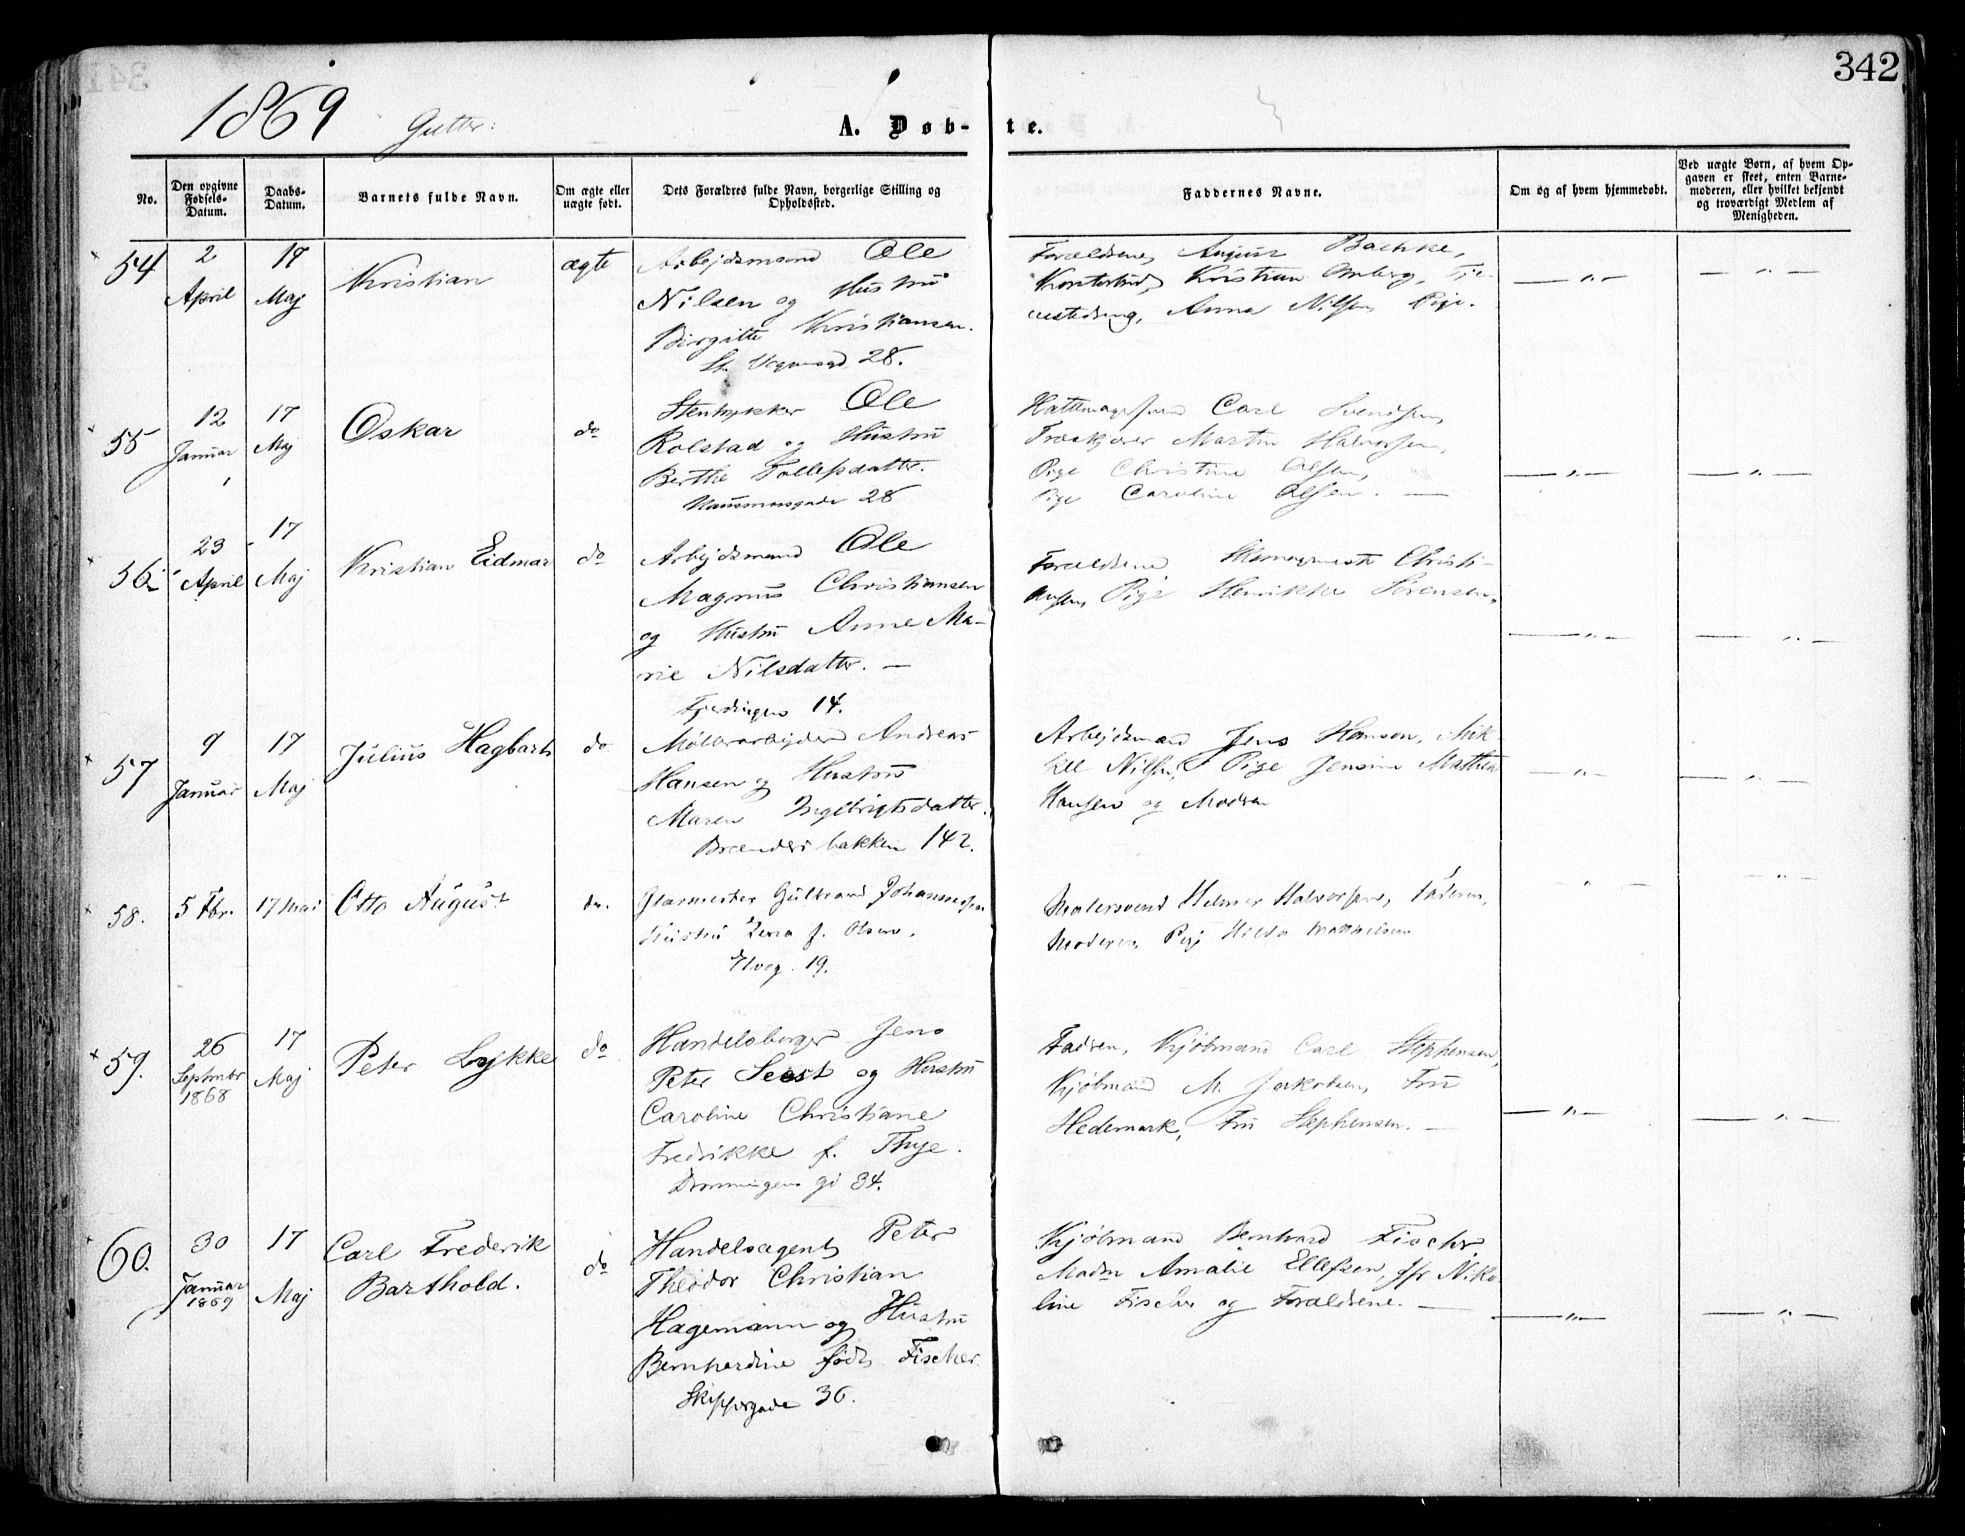 342
1869 Gutter:
A. Døb-te.
No.
Den opgivne Fødsels-Datum.
Daabs-Datum.
Barnets fulde Navn.
Om ægte eller uægte født.
Dets Forældres fulde Navn, borgerlige Stilling og Opholdssted.
Faddernes Navne.
Om og af hvem hjemmedøbt.
Ved uægte Børn, af hvem Opgaven er skeet, enten Barnemoderen, eller hvilket bekjendt og troværdigt Medlem af Menigheden.
54
2 April
17 Maj
Kristian
ægte
Arbejdsmand Ole
Nilsen og Hustru
Birgitte Kristiansen.
28.
Forældrene, August Bachke,
Kristian
Anna Nilsen Pige.
55
12 Januar
17 Maj
Oskar
do
Stenhykker Ole
Rolstad og Hustru
Berthe Tollefsdatter.
Hausmansgade 28
Carl Svendsen,
Træskjærer Martin Halvorsen,
Pige Christine Olsen,
Pige Caroline Olsen. —
56
23 April
17 Maj
Kristian Eidmar
do
Arbejdsmand Ole
Magnus Christiansen
og Hustru Anne Ma-
rie Nilsdatter. —
Fjerdingen 14.
Forældrene Christi-
ansen, Pige Henrikke Sørensen.
57
9 Januar
17 Maj
Julius Hagbart
do
Møllerarbejder Andreas
Hansen og Hustru
Maren Ingebrigtsdatter.
bakken 142.
Arbejdsmand Jens Hansen, Mik-
kel Nilsen, Pige Jensine Mathea
Hansen og Modren
58.
5 Fbr.
17 Mai
Otto August
do.
Glasmester Gulbrand Johannesen
Hustru f. Olsen.
Elveg. 19.
Malersvend Helmer Halvorsen, Faderen,
Moderen, Pige Hilda Mathiesen
59.
26 September 1868
17 Maj
Peter Lykke
do
Handelsborger Jens
Peter Seest og Hustru
Caroline Christiane
Fredrikke f. Thye.
Dronningens gd 34.
Fadren, Kjøbmand Carl Stephensen,
Kjøbmand M. Jakobsen, Fru
Hedemark, Fru Stephensen. —
60.
30 Januar 1869
17 Maj
Carl Frederik
Barthold.
do
Handelsagent Peter
Theodor Christian
Hagemann og Hustru
Bernhardine født Fischer
Skippergade 36.
Kjøbmand Bernhard Fischer
Madm Amalie Ellefsen, Jfr Niko-
line Fischer og Forældrene. —